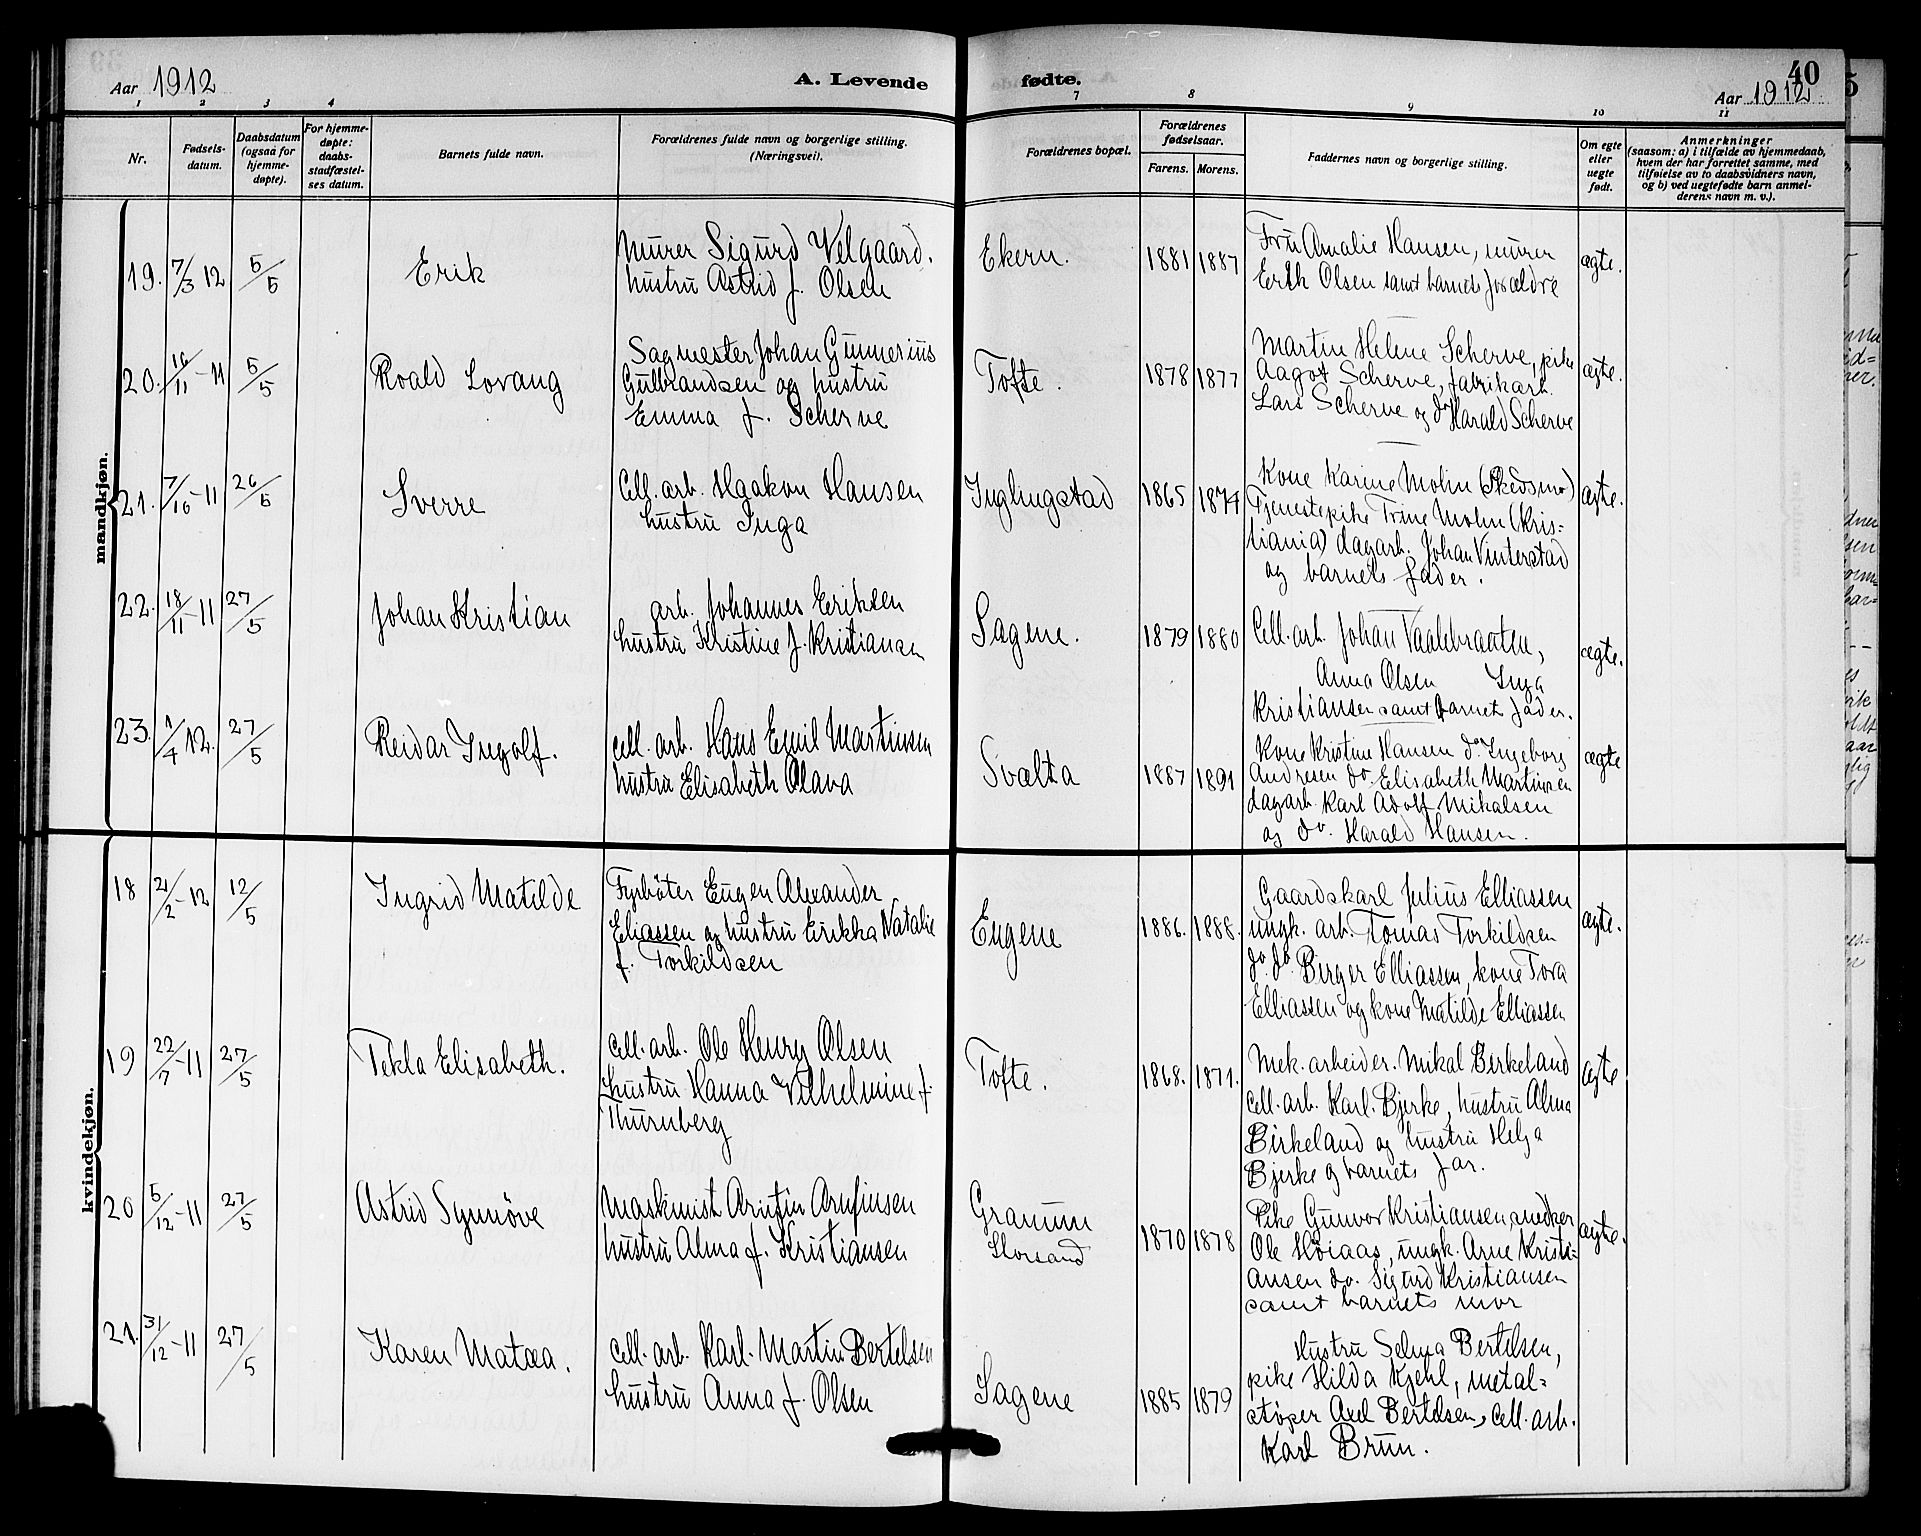 Aar 1912
A. Levende
fødte.
40
Aar 1912
1 2 3 4 7 8 9 10 11
Nr.
Fødsels-
datum.
Daabsdatum
(ogsaa for
hjemme-
døpte).
For hjemme-
døpte:
daabs-
stadfæstel-
ses datum.
Barnets fulde navn.
Forældrenes fulde navn og borgerlige stilling.
(Næringsvei).
Forældrenes bopæl.
Forældrenes
fødselsaar.
Farens. Morens.
Faddernes navn og borgerlige stilling.
Om egte
eller
uegte
født.
Anmerkninger
(saasom: a) i tilfælde av hjemmedaab,
hvem der har forrettet samme, med
tilføielse av to daabsvidners navn,
og b) ved uegtefødte barn anmel-
derens navn m. v.).
mandkjøn.
19. 7/3 12 5/5 Erik
Murer Sigurd Velgaard.
hustru Astrid f. Olsen
Ekern. 1881 1887
Fru Amalie Hansen, murer
Olsen samt barnets forældre
ægte.
20. 16/11 - 11 5/5 Roald Lovang
Sagmester Johan Gunnerius
Gulbrandsen og hustru
Emma f. Scherve
Tofte. 1878 1877
Martin Helene Scherve, pike
Aagot Scherve, fabrikarb.
Lars Scherve og do Harald Scherve
ægte.
21. 7/10 - 11 26/5 Sverre
Cell. arb. Haakon Hansen
hustru Inga
Inglingstad 1865 1874
Kone Karine Molin
Tjenestepike Trine Molin (Kris-
tiania) dagarb. Johan Vinterstad
og barnets fader.
ægte.
22. 18/11 - 11 27/5 Johan Kristian
arb. Johannes Eriksen
hustru Kristine f. Kristiansen
Sagene. 1879 1880
Cell. arb. Johan Vaalebraaten,
Anna Olsen Inga
Kristiansen samt barnets fader.
ægte.
23. 1/4 12. 27/5 Reidar Ingolf.
cell. arb. Hans Emil Martinsen
hustru Elisabeth Olava
Svælta 1887 1891
Kone Kristine Hansen do. Ingeborg
Andresen do. Elisabeth Martinsen
dagarb. Karl Adolf Mikalsen
og do. Harald Hansen.
ægte
kvindekjøn.
18 21/2 - 12 12/5 Ingrid Matilde
Fyrbøter Eugen Alexander
Eliassen og hustru Erikka Natalie
f. Torkildsen
Eugene 1886. 1888.
Gaardskarl Julius Elliassen
ungk. arb. Tomas Torkildsen
do. do. Birger Elliassen, kone Tora
Elliassen og kone Matilde Elliassen
ægte.
19 22/7 - 11 27/5 Tekla Elisabeth.
cell. arb. Ole Henry Olsen
hustru Hanna Vilhelmine f.
Thurnberg
Tofte. 1868. 1871.
Mek. arbeider. Mikal Birkeland
cell. arb. Karl. Bjerke, hustru Alma
Birkeland og hustru Helga
Bjerke og barnets far.
ægte
20 5/12 - 11 27/5 Astrid Synnöve
Maskinist Arnfin Arnfinsen
hustru Alma f. Kristiansen
Granum
Storsand
1870 1878
Pike Gunvor Kristiansen, snedker
Ole Höiaas, ungk. Arne Kristi-
ansen do. Sigurd Kristiansen
samt barnets mor
ægte.
21. 31/12 - 11 27/5 Karen Matæa.
cell. arb. Karl. Martin Bertelsen
hustru Anna f. Olsen
Sagene 1885 1879
Hustru Selma Bertelsen,
pike Hilda Kjehl, metal-
støper Axel Bertelsen, cell. arb.
Karl Brun.